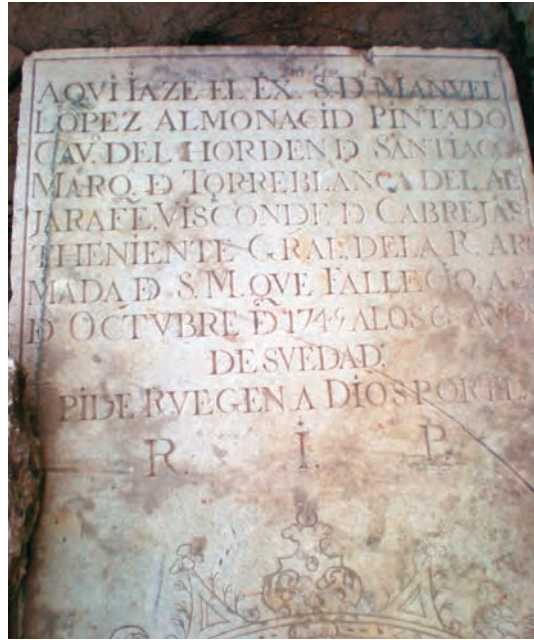 AQVI IAZE EL EX.mo S.or D.n MANVEL
LOPEZ ALMONACID PINTADO
CAV. DEL HORDEN Ð SANTIAGO
MARQ. Ð TORREBLANCA DEL AL
JARAFE, VISCONDE Ð CABREJAS
THENIENTE GRAL. DE LA R. AR
MADA Ð S. M. QVE FALLECIO. A
Ð OCTVBRE Ð A LOS AÑOS
DE SVEDAD.
PIDE RVEGEN A DIOS POR EL.
R. I. P.